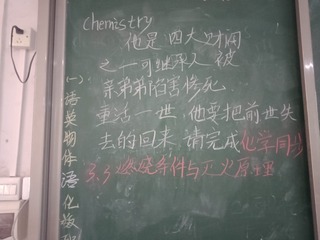 chemistry
他是四大财阀
之一可继承人被
亲弟弟陷害惨死.
重活一世,他要把前世失
去的回来,请完成化学同步
3.3燃烧条件与灭火原理
(一)
语
英
物
体
语
化